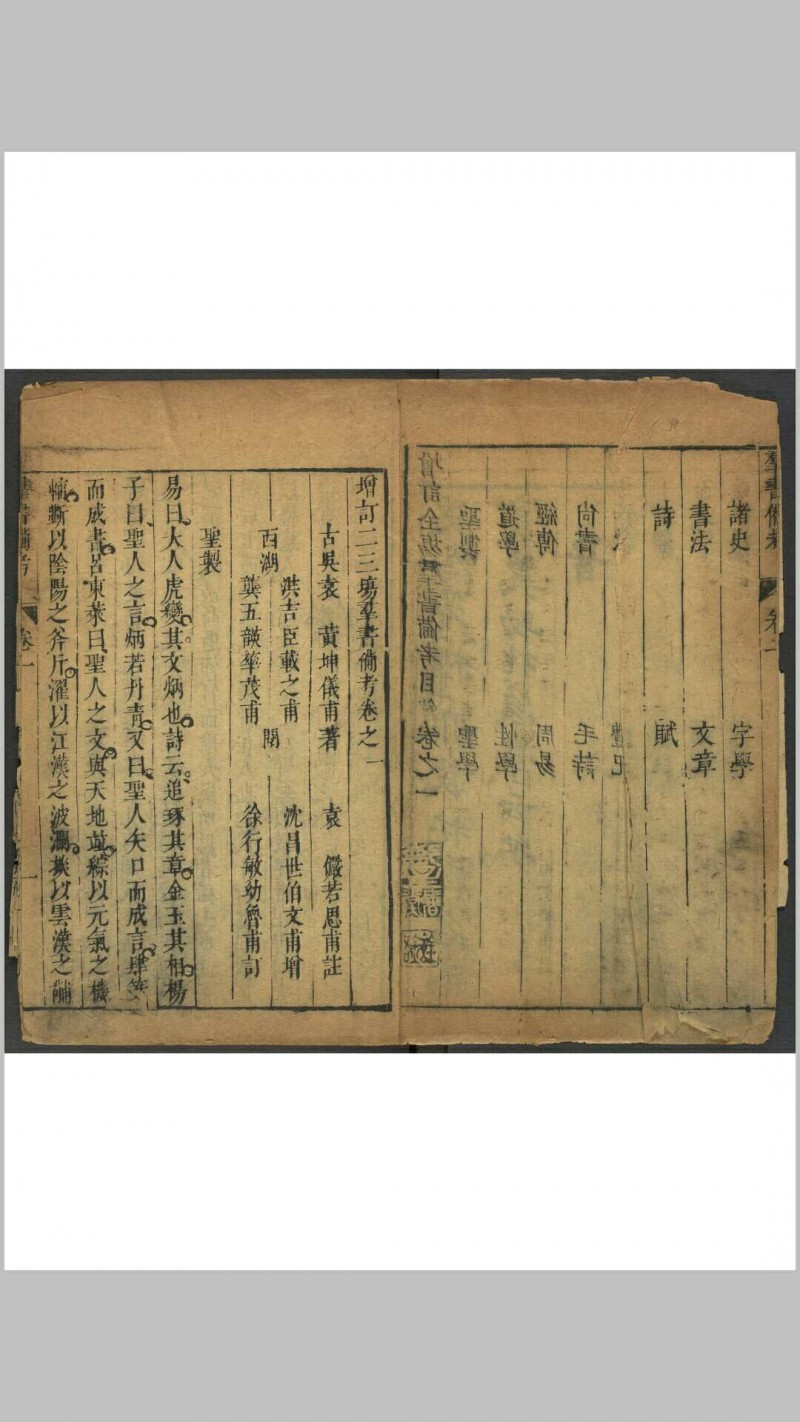 羣書備考 卷一
諸史 字學
書法 文章
詩 賦
禮記
尚書 毛詩
經傳 周易
道學 性學
聖製 聖學
增訂全場羣書備考目 卷之一
增訂二三塲羣書備考卷之一
古吳袁 黃坤儀甫著 袁 儼若思甫註
西湖 洪吉臣載之甫 閱 沈昌世伯文甫增
龔五韺華茂甫 徐行敏幼魯甫訂
聖製
易曰大人虎變其文炳也詩云追琢其章金玉其相楊
子曰聖人之言炳若丹青又曰聖人矢口而成言肆筆
而成書呂東萊曰聖人之文與天地並綜以元氣之機
軸斲以陰陽之斧斤濯以江漢之波瀾掞以雲漢之黼
羣書備考 卷一 一